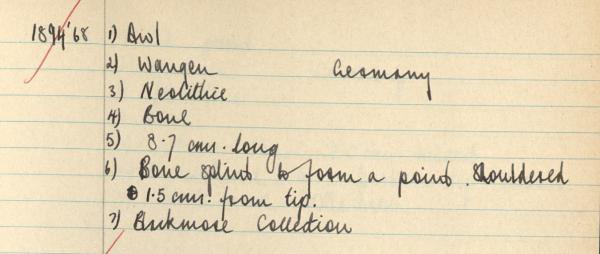 1894'68 1) Awl
2) Wangen Germany
3) Neolithic
4) Bone
5) 8.7 cms. long
6) Bone splint to form a point. Shouldered
1.5 cms. from tip.
7) Blackmore Collection